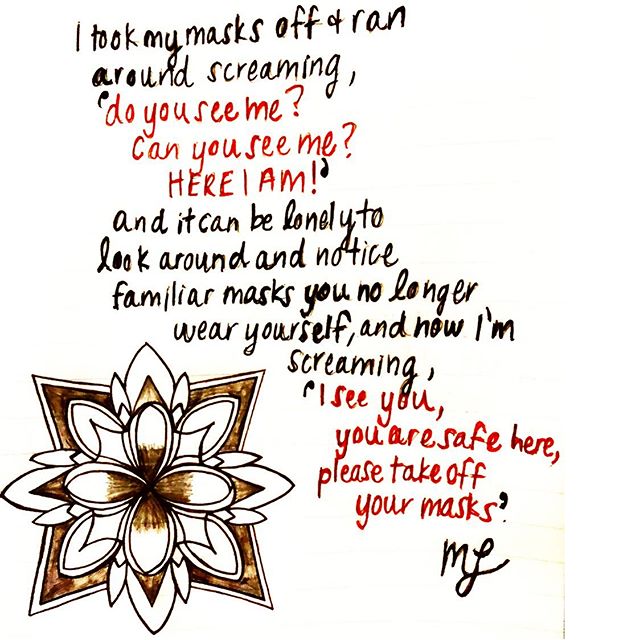 I took my masks off & ran
around screaming,
'do you see me?
can you see me?
HERE I AM!'
and it can be lonely to
look around and notice
familiar masks you no longer
wear yourself, and now I'm
screaming,
'I see you,
you are safe here,
please take off
your masks'.